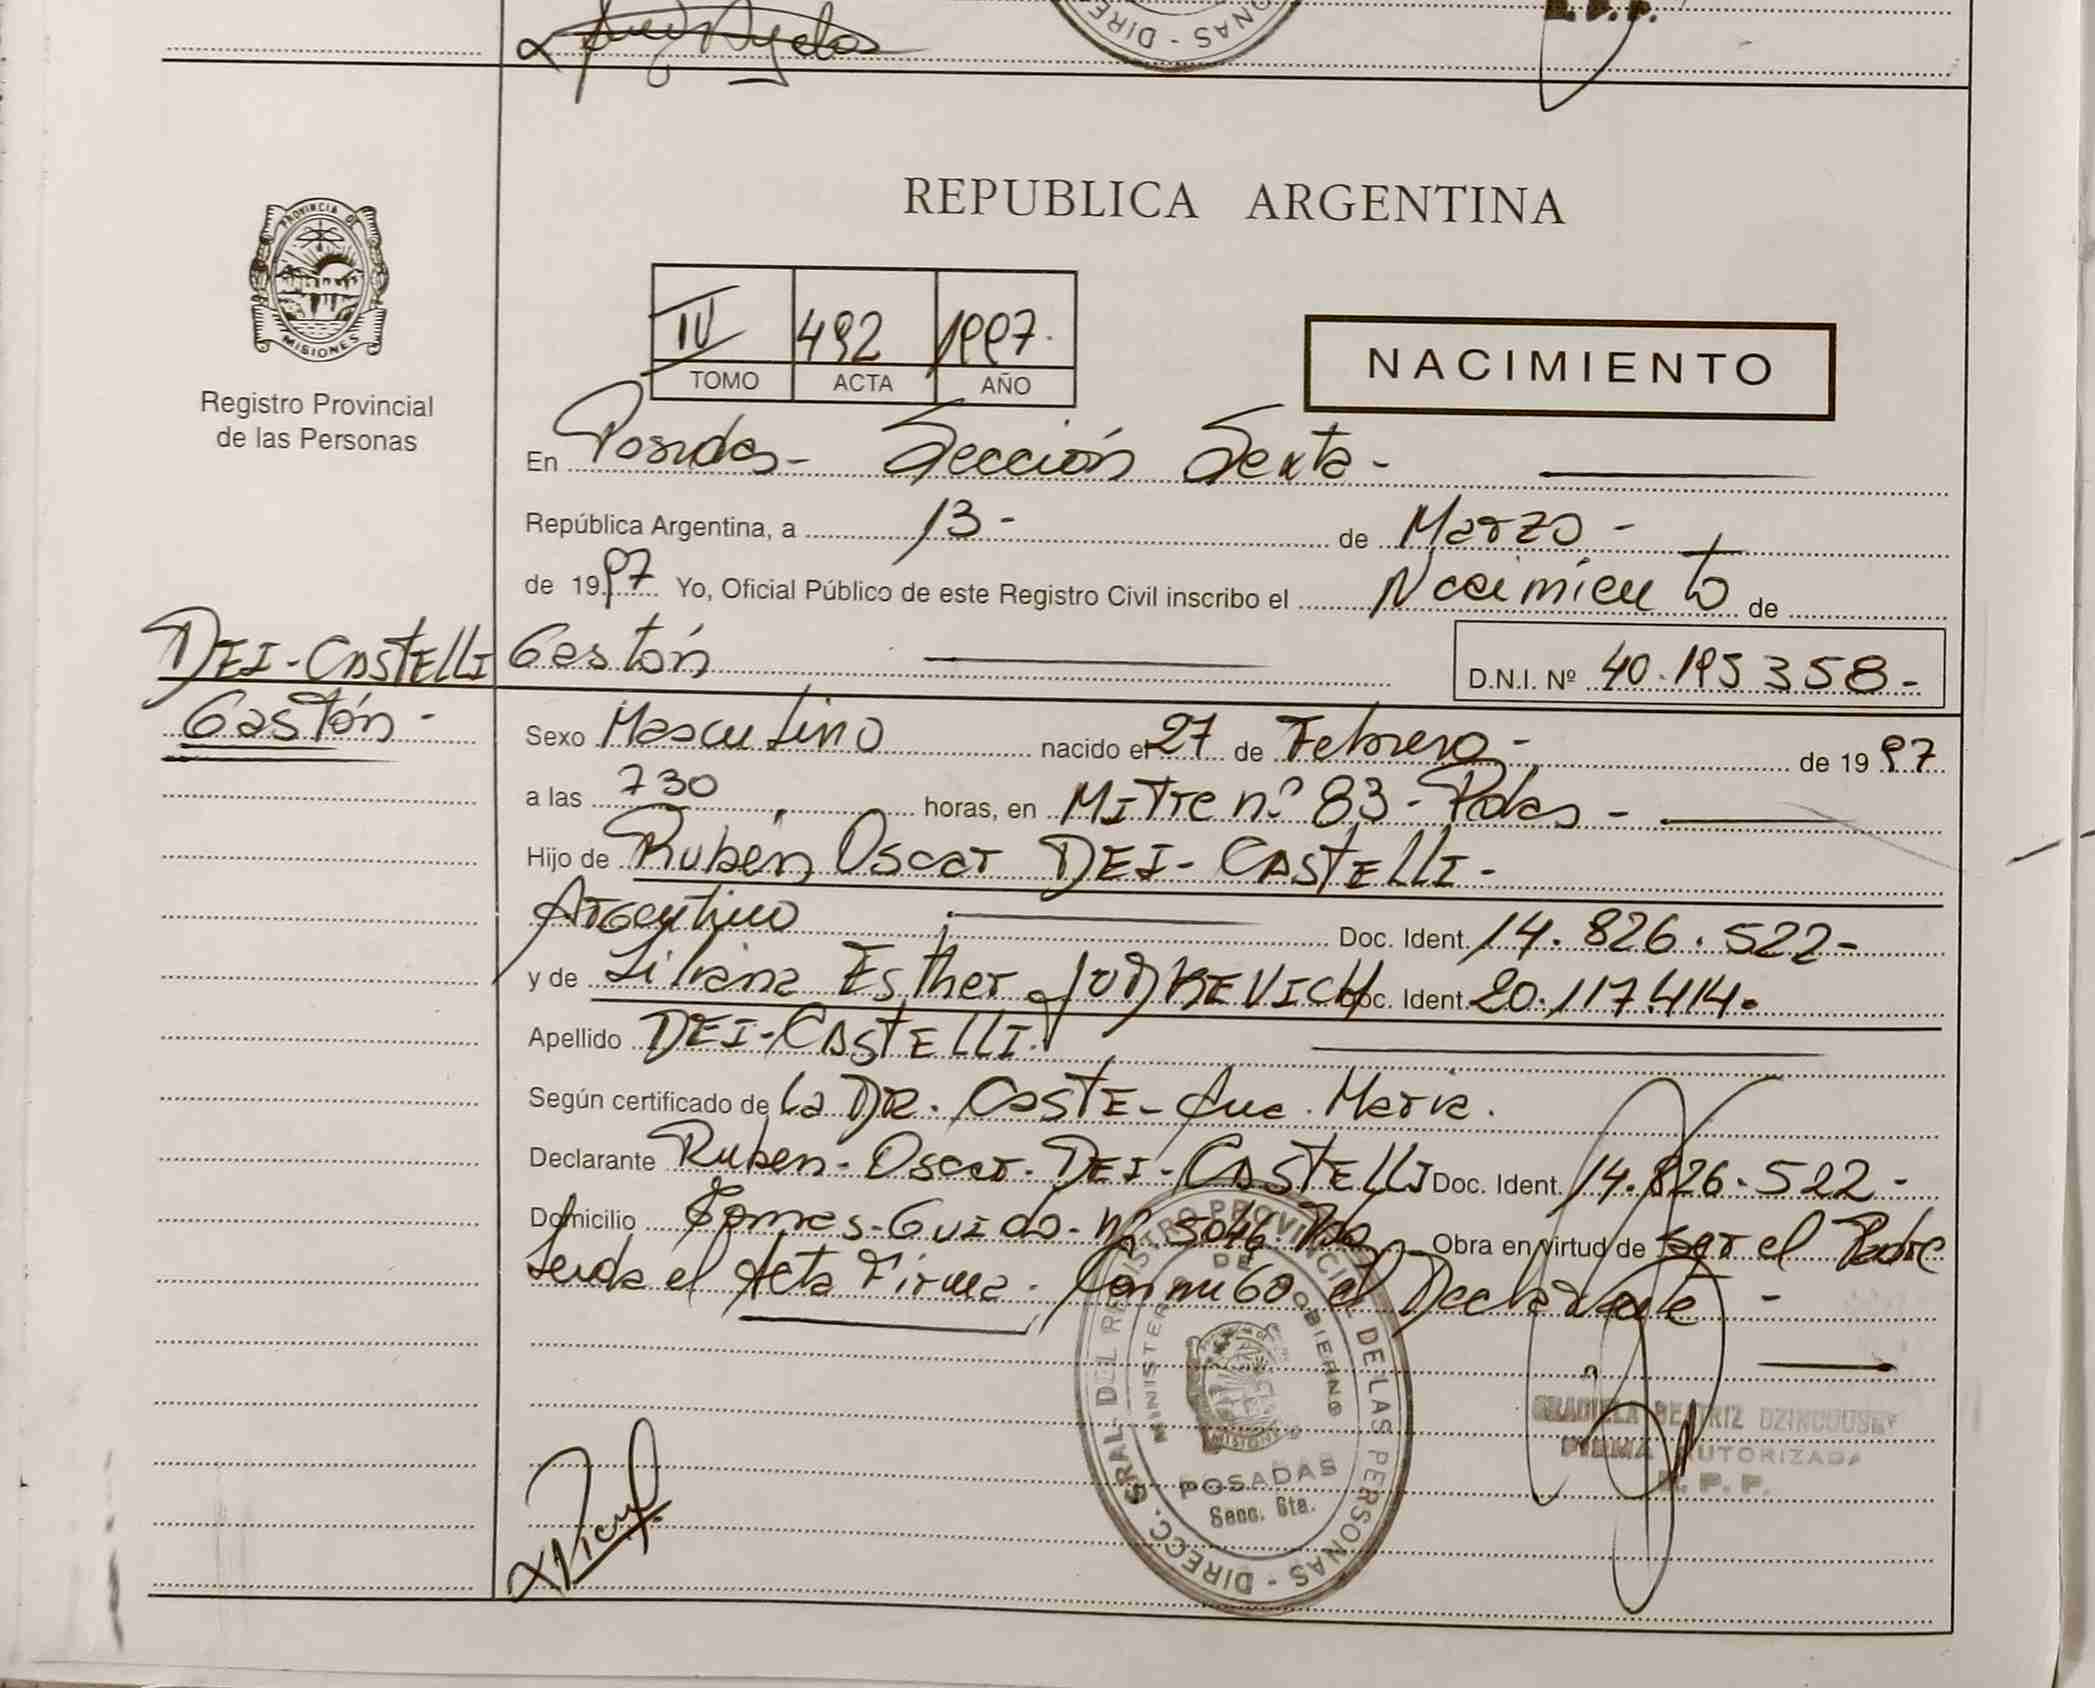 NAS - DIRE
R. P. P.
REPUBLICA ARGENTINA
PROVINCIA DE
MISIONES
Registro Provincial
de las Personas
IV 492 1997.
TOMO ACTA AÑO
NACIMIENTO
En Posadas - Sección Sexta -
República Argentina, a 13 - de Marzo -
de 1997 Yo, Oficial Público de este Registro Civil inscribo el Nacimiento de
DEI-CASTELLI Gastón D.N.I. Nº 40.195358-
Gastón -
Sexo Masculino nacido el 27 de Febrero - de 1997
a las 730 horas, en MiTre n.º 83 - Pdas -
Hijo de Rubén Oscar DEI-CASTELLI -
Argentino Doc. Ident. 14.826.522-
y de Liliana Esther Doc. Ident. 20.117.414.
Apellido DEI-CASTELLI.
Según certificado de La DR. COSTE - Ana. María.
Declarante Ruben - Oscar. DEI-CASTELLI Doc. Ident. 14.826.522 -
Domicilio Tomas - Guido - nº 5046. Pda Obra en virtud de ser el Padre
Leida el Acta Firma. Conmigo el Declarante -
DIRECC. GRAL. DEL REGISTRO PROVINCIAL DE LAS PERSONAS -
MINISTERIO DE GOBIERNO
MISIONES
POSADAS
Secc. 6ta.
GRACIELA BEATRIZ
FIRMA AUTORIZADA
R. P. P.